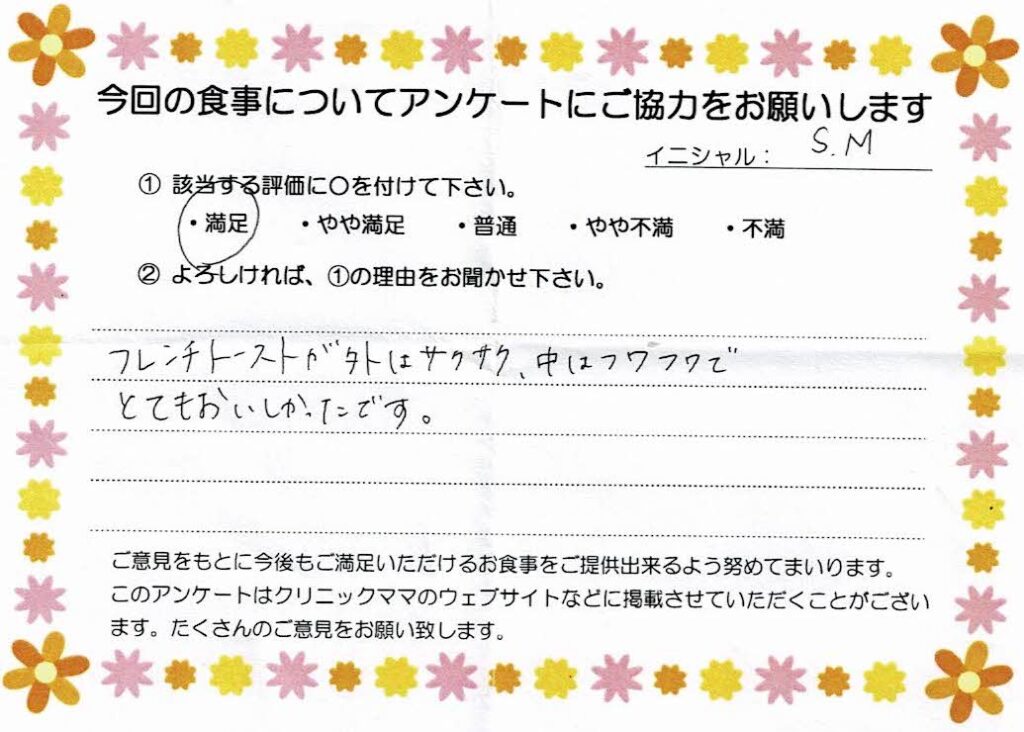 今回の食事についてアンケートにご協力をお願いします
イニシャル： S.M
① 該当する評価に〇を付けて下さい。
・満足 ・やや満足 ・普通 ・やや不満 ・不満
② よろしければ、①の理由をお聞かせ下さい。
フレンチトーストが外はサクサク、中はフワフワで
とてもおいしかったです。
ご意見をもとに今後もご満足いただけるお食事をご提供出来るよう努めてまいります。
このアンケートはクリニックママのウェブサイトなどに掲載させていただくことがござい
ます。たくさんのご意見をお願い致します。